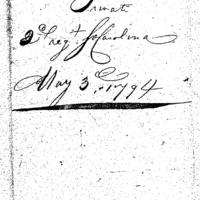 Private
2d regt So Carolina
May 3d 1794